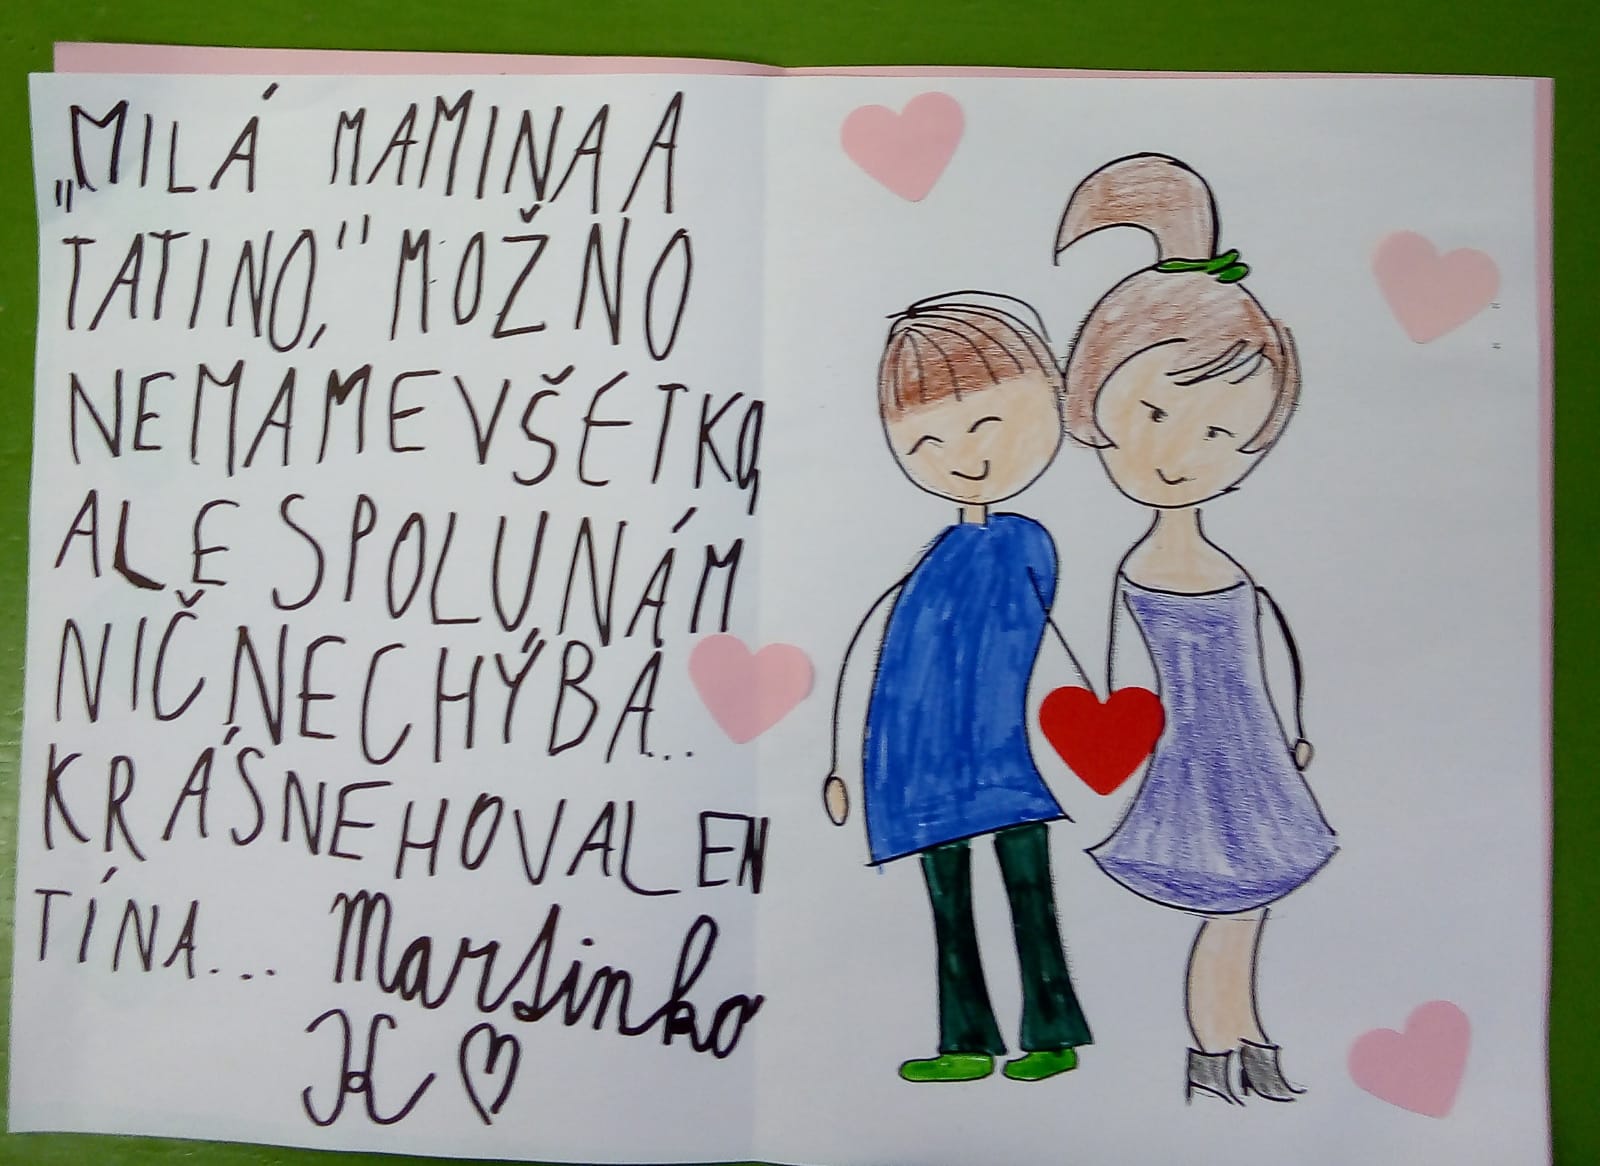 „MILÁ MAMINA A
TATINO," MOŽNO
NEMÁME VŠETKO,
ALE SPOLU NÁM
NIČ NECHÝBA..
KRÁSNEHO VALEN
TÍNA... Martinko
K